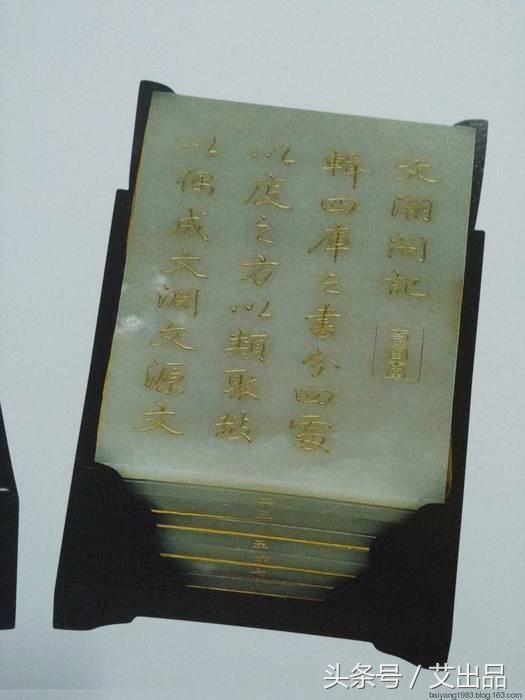 文溯閣記
輯四庫之書分四處
以庋之方以類聚數
以偶成文淵文源文
二
三
五
六
七
头条号 / 艾出品
baiyang1983.blog.163.com